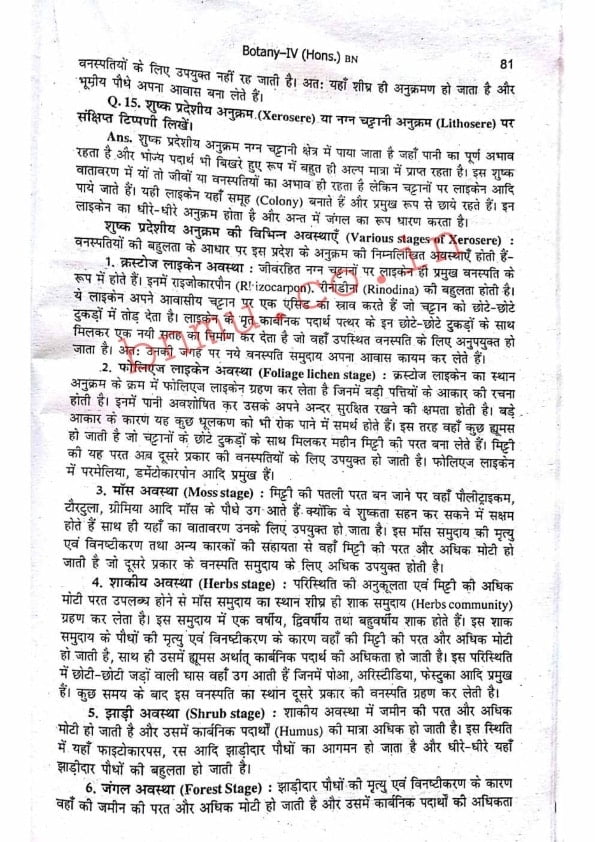 Botany–IV (Hons.) BN
81
वनस्पतियों के लिए उपयुक्त नहीं रह जाती है। अतः यहाँ शीघ्र ही अनुक्रमण हो जाता है और
भूमीय पौधे अपना आवास बना लेते हैं।
Q. 15. शुष्क प्रदेशीय अनुक्रम (Xerosere) या नग्न चट्टानी अनुक्रम (Lithosere) पर
संक्षिप्त टिप्पणी लिखें।
Ans. शुष्क प्रदेशीय अनुक्रम नग्न चट्टानी क्षेत्र में पाया जाता है जहाँ पानी का पूर्ण अभाव
रहता है और भोज्य पदार्थ भी बिखरे हुए रूप में बहुत ही अल्प मात्रा में प्राप्त रहता है। इस शुष्क
वातावरण में यों तो जीवों या वनस्पतियों का अभाव ही रहता है लेकिन चट्टानों पर लाइकेन आदि
पाये जाते हैं। यही लाइकेन यहाँ समूह (Colony) बनाते हैं और प्रमुख रूप से छाये रहते हैं। इन
लाइकेन का धीरे-धीरे अनुक्रम होता है और अन्त में जंगल का रूप धारण करता है।
शुष्क प्रदेशीय अनुक्रम की विभिन्न अवस्थाएँ (Various stages of Xerosere) :
वनस्पतियों की बहुलता के आधार पर इस प्रदेश के अनुक्रम की निम्नलिखित अवस्थाएँ होती हैं-
1. क्रस्टोज लाइकेन अवस्था : जीवरहित नग्न चट्टानों पर लाइकेन ही प्रमुख वनस्पति के
रूप में होते हैं। इनमें राइजोकार्पौन (Rhizocarpon), रीनोडीना (Rinodina) की बहुलता होती है।
ये लाइकेन अपने आवासीय चट्टान पर एक एसिड का स्राव करते हैं जो चट्टान को छोटे-छोटे
टुकड़ों में तोड़ देता है। लाइकेन के मृत कार्बनिक पदार्थ पत्थर के इन छोटे-छोटे टुकड़ों के साथ
मिलकर एक नयी सतह का निर्माण कर देता है जो वहाँ उपस्थित वनस्पति के लिए अनुपयुक्त हो
जाता है। अतः उनकी जगह पर नये वनस्पति समुदाय अपना आवास कायम कर लेते हैं।
2. फोलिएज लाइकेन अवस्था (Foliage lichen stage) : क्रस्टोज लाइकेन का स्थान
अनुक्रम के क्रम में फोलिएज लाइकेन ग्रहण कर लेता है जिनमें बड़ी पत्तियों के आकार की रचना
होती है। इनमें पानी अवशोषित कर उसके अपने अन्दर सुरक्षित रखने की क्षमता होती है। बड़े
आकार के कारण यह कुछ धूलकण को भी रोक पाने में समर्थ होते हैं। इस तरह वहाँ कुछ ह्यूमस
हो जाती है जो चट्टानों के छोटे टुकड़ों के साथ मिलकर महीन मिट्टी की परत बना लेते हैं। मिट्टी
की यह परत अब दूसरे प्रकार की वनस्पतियों के लिए उपयुक्त हो जाती है। फोलिएज लाइकेन
में परमेलिया, डर्मेटोकारपोन आदि प्रमुख हैं।
3. मॉस अवस्था (Moss stage) : मिट्टी की पतली परत बन जाने पर वहाँ पौलीट्राइकम,
टौरटुला, ग्रीमिया आदि मॉस के पौधे उग आते हैं क्योंकि वे शुष्कता सहन कर सकने में सक्षम
होते हैं साथ ही यहाँ का वातावरण उनके लिए उपयुक्त हो जाता है। इस मॉस समुदाय की मृत्यु
एवं विनष्टीकरण तथा अन्य कारकों की सहायता से वहाँ मिट्टी की परत और अधिक मोटी हो
जाती है जो दूसरे प्रकार के वनस्पति समुदाय के लिए अधिक उपयुक्त होती है।
4. शाकीय अवस्था (Herbs stage) : परिस्थिति की अनुकूलता एवं मिट्टी की अधिक
मोटी परत उपलब्ध होने से मॉस समुदाय का स्थान शीघ्र ही शाक समुदाय (Herbs community)
ग्रहण कर लेता है। इस समुदाय में एक वर्षीय, द्विवर्षीय तथा बहुवर्षीय शाक होते हैं। इस शाक
समुदाय के पौधों की मृत्यु एवं विनष्टीकरण के कारण वहाँ की मिट्टी की परत और अधिक मोटी
हो जाती है, साथ ही उसमें ह्यूमस अर्थात् कार्बनिक पदार्थ की अधिकता हो जाती है। इस परिस्थिति
में छोटी-छोटी जड़ों वाली घास वहाँ उग आती हैं जिनमें पोआ, अरिस्टीडिया, फेस्टुका आदि प्रमुख
हैं। कुछ समय के बाद इस वनस्पति का स्थान दूसरे प्रकार की वनस्पति ग्रहण कर लेती है।
5. झाड़ी अवस्था (Shrub stage) : शाकीय अवस्था में जमीन की परत और अधिक
मोटी हो जाती है और उसमें कार्बनिक पदार्थों (Humus) की मात्रा अधिक हो जाती है। इस स्थिति
में यहाँ फाइटोकारपस, रस आदि झाड़ीदार पौधों का आगमन हो जाता है और धीरे-धीरे यहाँ
झाड़ीदार पौधों की बहुलता हो जाती है।
6. जंगल अवस्था (Forest Stage) : झाड़ीदार पौधों की मृत्यु एवं विनष्टीकरण के कारण
वहाँ की जमीन की परत और अधिक मोटी हो जाती है और उसमें कार्बनिक पदार्थों की अधिकता
bnmu.co.in